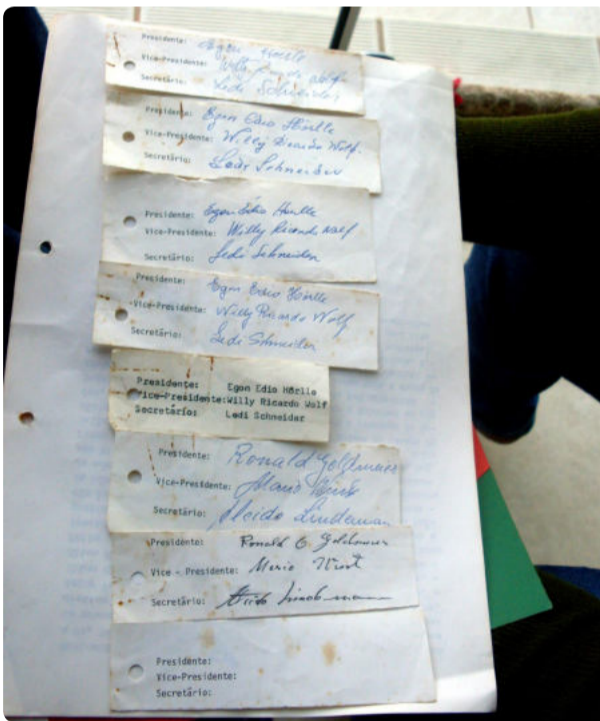 Presidente: Egon
Vice-Presidente:
Secretário: Ledi Schneider
Presidente: Egon Edio Hörlle
Vice-Presidente: Willy Ricardo Wolf.
Secretário: Ledi Schneider
Presidente: Egon Edio Hörlle
Vice-Presidente: Willy Ricardo Wolf
Secretário: Ledi Schneider
Presidente: Egon Edio Hörlle
Vice-Presidente: Willy Ricardo Wolf
Secretário: Ledi Schneider
Presidente: Egon Edio Hörlle
Vice-Presidente:Willy Ricardo Wolf
Secretário: Ledi Schneider
Presidente: Ronald
Vice-Presidente: Mario
Secretário: Lindeman
Presidente: Ronald G.
Vice - Presidente: Mario
Secretário:
Presidente:
Vice-Presidente:
Secretário: